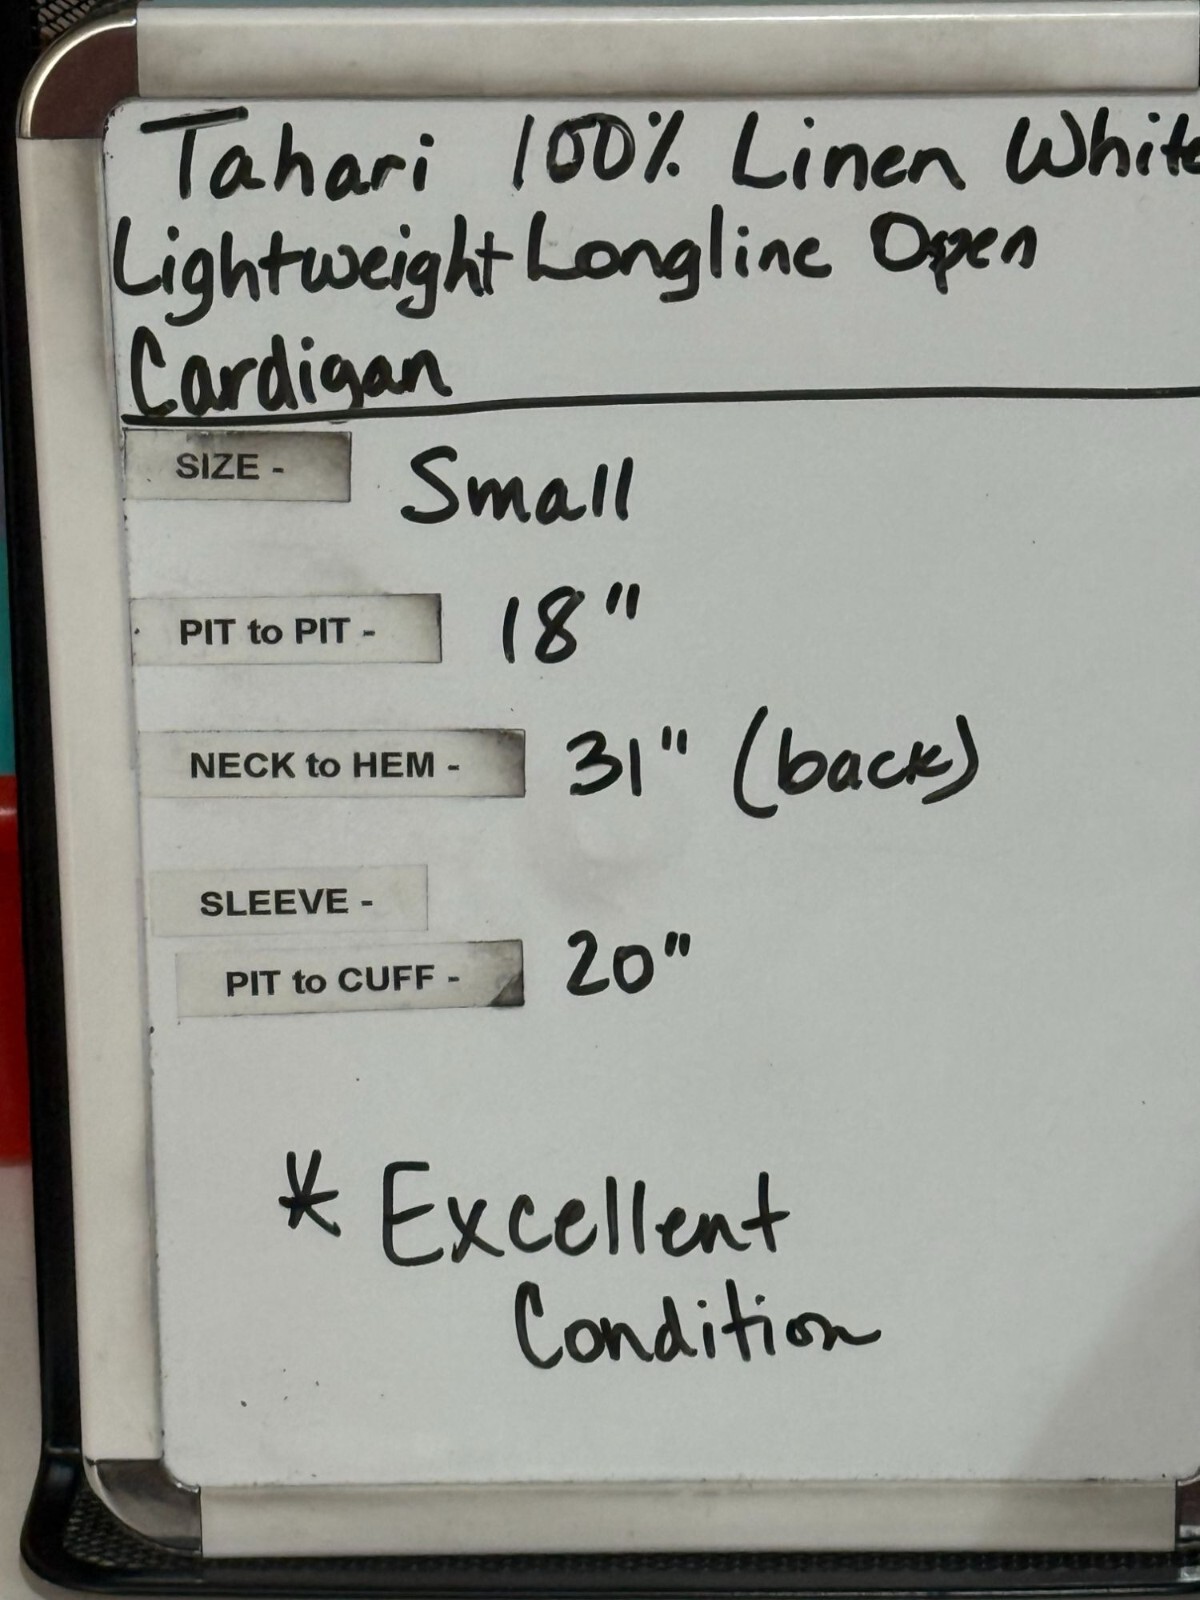 Tahari 100% Linen White
Lightweight Longline Open
Cardigan
SIZE - Small
PIT to PIT - 18"
NECK to HEM - 31" (back)
SLEEVE -
PIT to CUFF - 20"
* Excellent
Condition